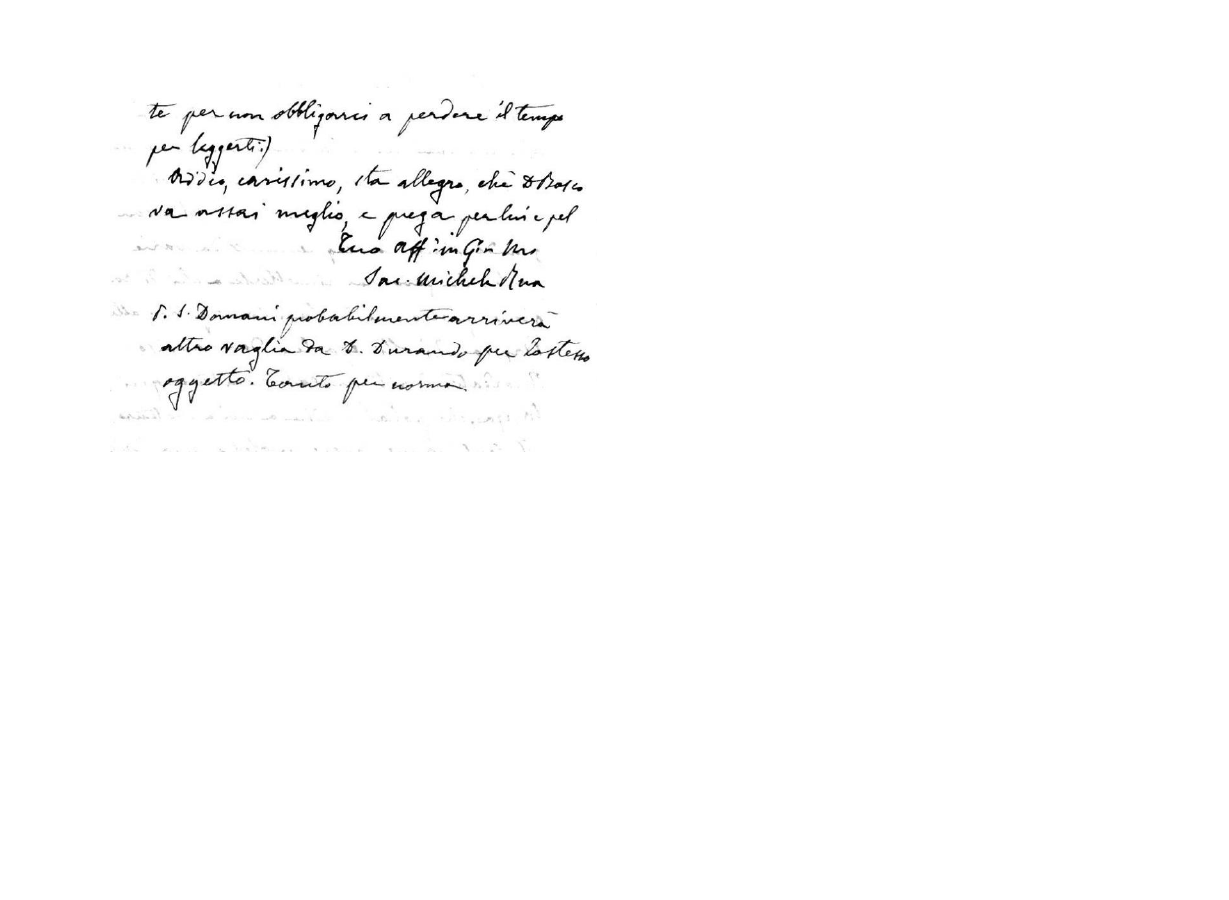 te per non obbligarci a perdere il tempo
per leggerti.)
Addio, carissimo, sta allegro, chè D Bosco
va assai meglio, e prega per lui e pel
Tuo aff in Gesù
Sac. Michele Rua
P. S. Domani probabilmente arriverà
altro vaglia da D. Durando per lo stesso
oggetto. Tanto per norma.